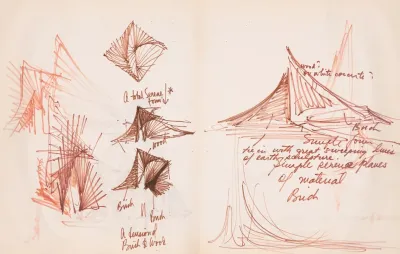 A total Sense
form
wood
Brick
Brick
A
Brick & Wood
wood?
or white concrete?
Brick
Simple form
tie in with great sweeping lines
of earth sculpture.
Simple planes
of material
Brick